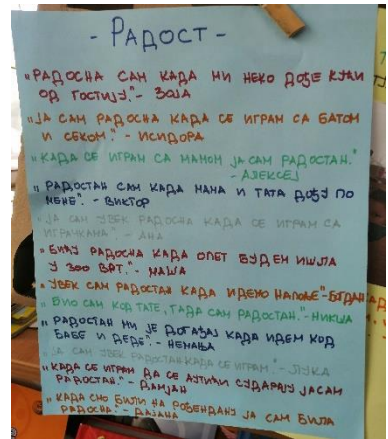 - РАДОСТ -
„РАДОСНА САМ КАДА МИ НЕКО ДОЂЕ КУЋИ
ОД ГОСТИЈУ.“ - ЗОЈА
„ЈА САМ РАДОСНА КАДА СЕ ИГРАМ СА БАТОМ
И СЕКОМ.“ - ИСИДОРА
„КАДА СЕ ИГРАМ СА МАМОМ ЈА САМ РАДОСТАН.“
- АЛЕКСЕЈ
„РАДОСТАН САМ КАДА МАМА И ТАТА ДОЂУ ПО
МЕНЕ“. - ВИКТОР
„ЈА САМ УВЕК РАДОСНА КАДА СЕ ИГРАМ СА
ИГРАЧКАМА“. - АНА
„БИЋУ РАДОСНА КАДА ОПЕТ БУДЕМ ИШЛА
У ЗОО ВРТ.“ - МАША
„УВЕК САМ РАДОСТАН КАДА ИДЕМО НАПОЉЕ“ - БОГДАН
„БИО САМ КОД ТАТЕ, ТАДА САМ РАДОСТАН.“ - НИКША
„РАДОСТАН МИ ЈЕ ДОГАЂАЈ КАДА ИДЕМ КОД
БАБЕ И ДЕДЕ“. - НЕМАЊА
„ЈА САМ УВЕК РАДОСТАН КАДА СЕ ИГРАМ.“ - ЛУКА
„КАДА СЕ ИГРАМ ДА СЕ АУТИЋИ СУДАРАЈУ ЈА САМ
РАДОСТАН.“ - ДАМЈАН
„КАДА СМО БИЛИ НА РОЂЕНДАНУ ЈА САМ БИЛА
РАДОСНА.“ - ДАЈАНА